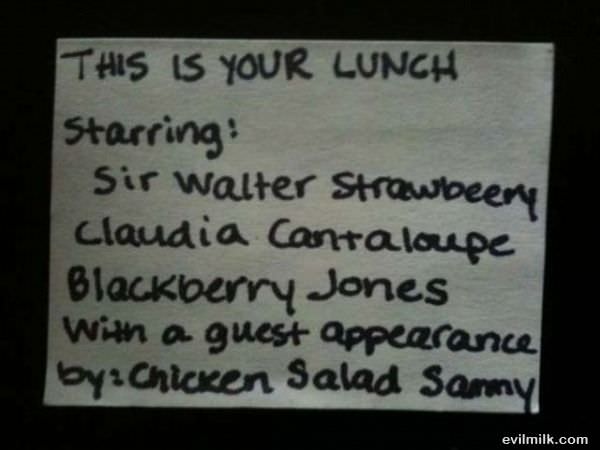 THIS IS YOUR LUNCH
Starring:
Sir Walter Strawbeery
Claudia Cantaloupe
Blackberry Jones
With a guest appearance
by: Chicken Salad Sammy
evilmilk.com